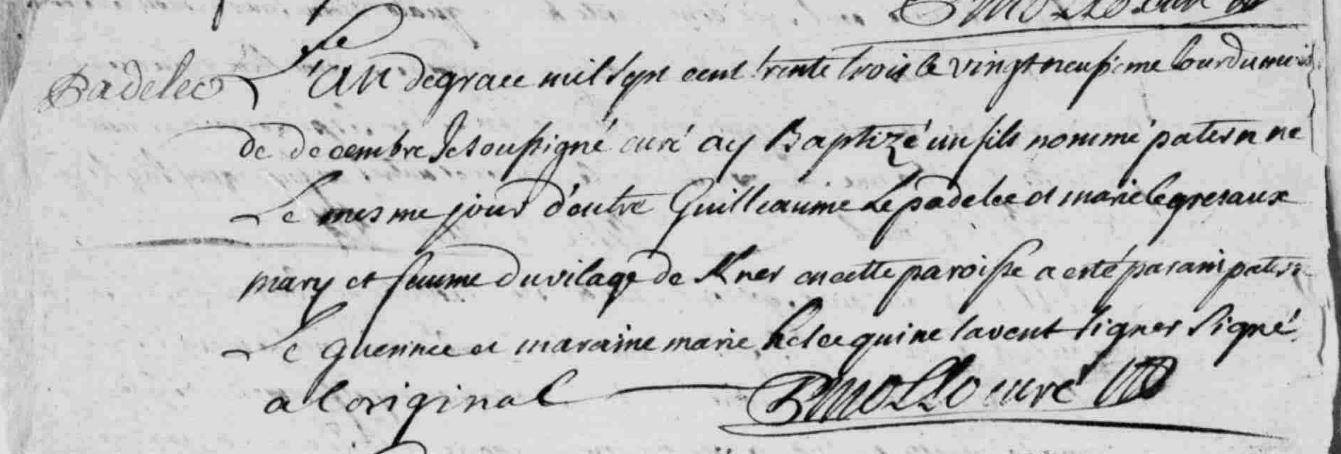 Padelec L'an de grace mil sept cent trente trois le vingt neufieme Jour du mois
de decembre Je soussigné curé ay Baptizé un fils nommé patern ne
Le mesme jour d'entre Guilleaume Le padelec et marie le gresaux
mary et femme du vilage de Kner en cette paroisse a esté parain patern
Le guennec et maraine marie qui ne savent signer Signé
a l'original P mollo curé